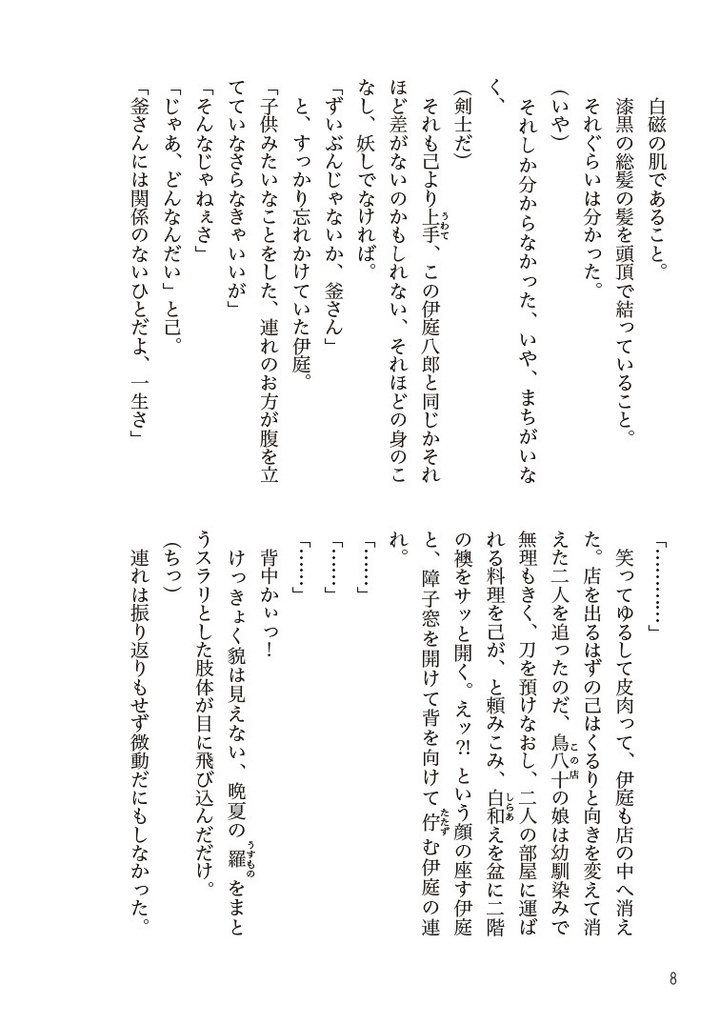 白磁の肌であること。
漆黒の総髪の髪を頭頂で結っていること。
それぐらいは分かった。
(いや)
それしか分からなかった、いや、まちがいな
く、
(剣士だ)
それも己より上手、この伊庭八郎と同じかそれ
うわて
ほど差がないのかもしれない、それほどの身のこ
なし、妖しでなければ。
「ずいぶんじゃないか、釜さん」
と、すっかり忘れかけていた伊庭。
「子供みたいなことをした、連れのお方が腹を立
てていなさらなきゃいいが」
「そんなじゃねぇさ」
「じゃあ、どんなんだい」と己。
「釜さんには関係のないひとだよ、一生さ」
「…………」
笑ってゆるして皮肉って、伊庭も店の中へ消え
た。店を出るはずの己はくるりと向きを変えて消
えた二人を追ったのだ、鳥八十の娘は幼馴染みで
この店
無理もきく、刀を預けなおし、二人の部屋に運ば
れる料理を己が、と頼みこみ、白和えを盆に二階
しらあ
の襖をサッと開く。えッ?! という顔の座す伊庭
と、障子窓を開けて背を向けて佇む伊庭の連
たたず
れ。
「……」
「……」
「……」
背中かぃっ!
けっきょく貌は見えない、晩夏の羅をまと
うすもの
うスラリとした肢体が目に飛び込んだだけ。
(ちっ)
連れは振り返りもせず微動だにもしなかった。
8